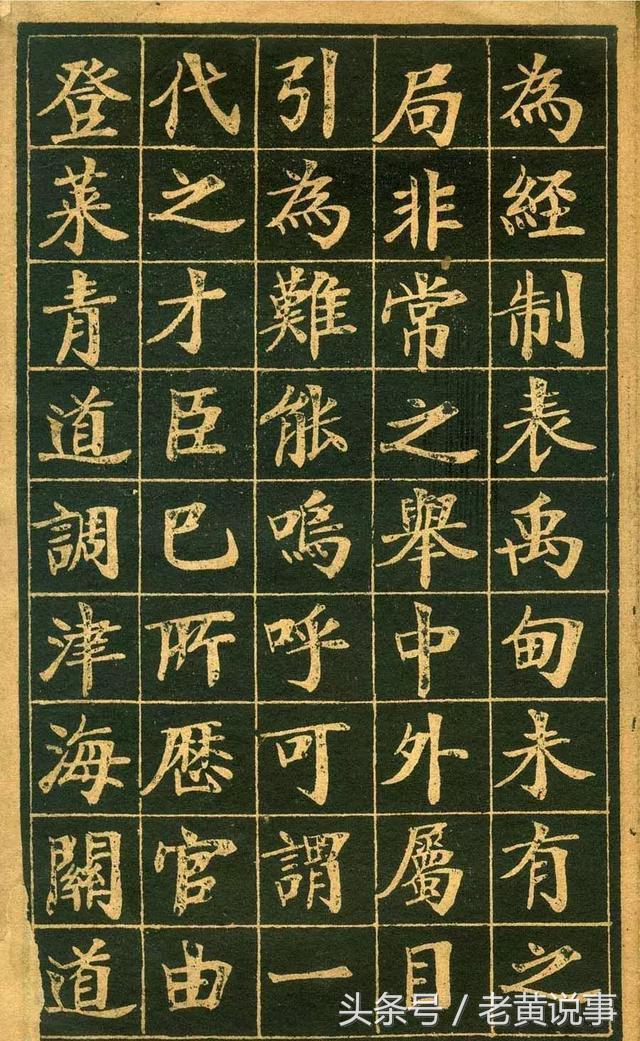 為經制表禹甸未有之
局非常之舉中外屬目
引為難能嗚呼可謂一
代之才臣已所歷官由
登萊青道調津海關道
头条号/老黄说事